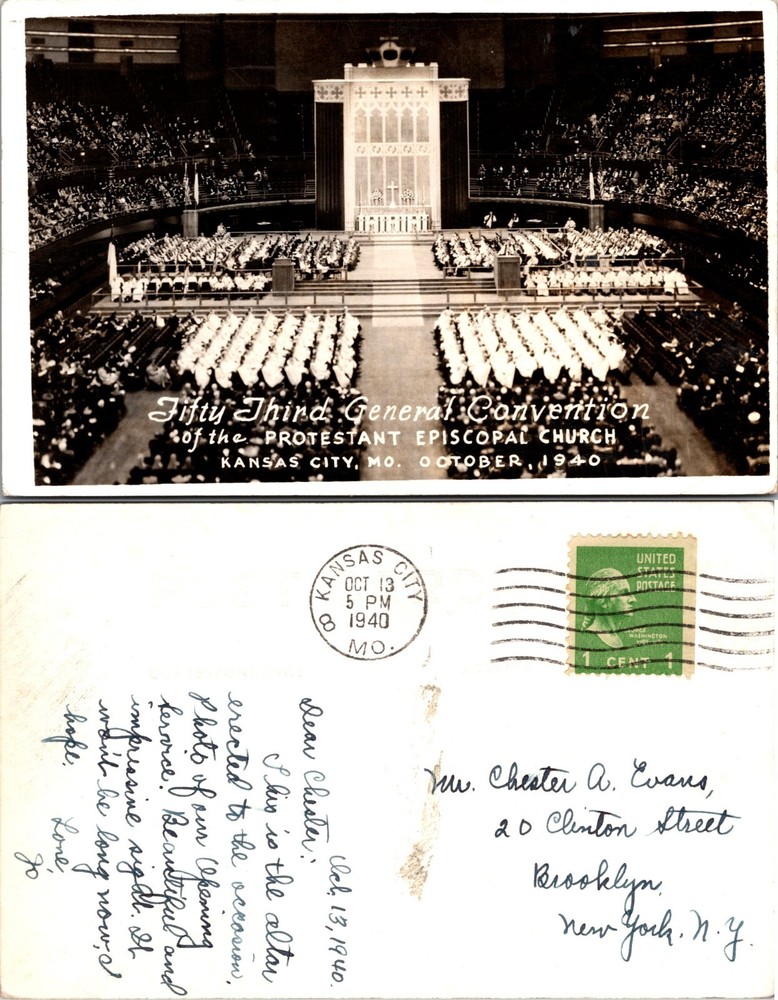 Fifty Third General Convention
of the PROTESTANT EPISCOPAL CHURCH
KANSAS CITY, MO. OCTOBER, 1940
KANSAS CITY
OCT 13
5 PM
1940
8 MO.
UNITED
STATES
POSTAGE
WASHINGTON
1 CENT 1
Oct, 13, 1940.
Dear Chester:
This is the altar
erected to the occasion.
Photo of our Opening
Service. Beautiful and
impressive sight. It
won't be long now, I
hope.
Love,
Jo
Mr. Chester A. Evans,
20 Clinton Street
Brooklyn,
New York. N.Y.